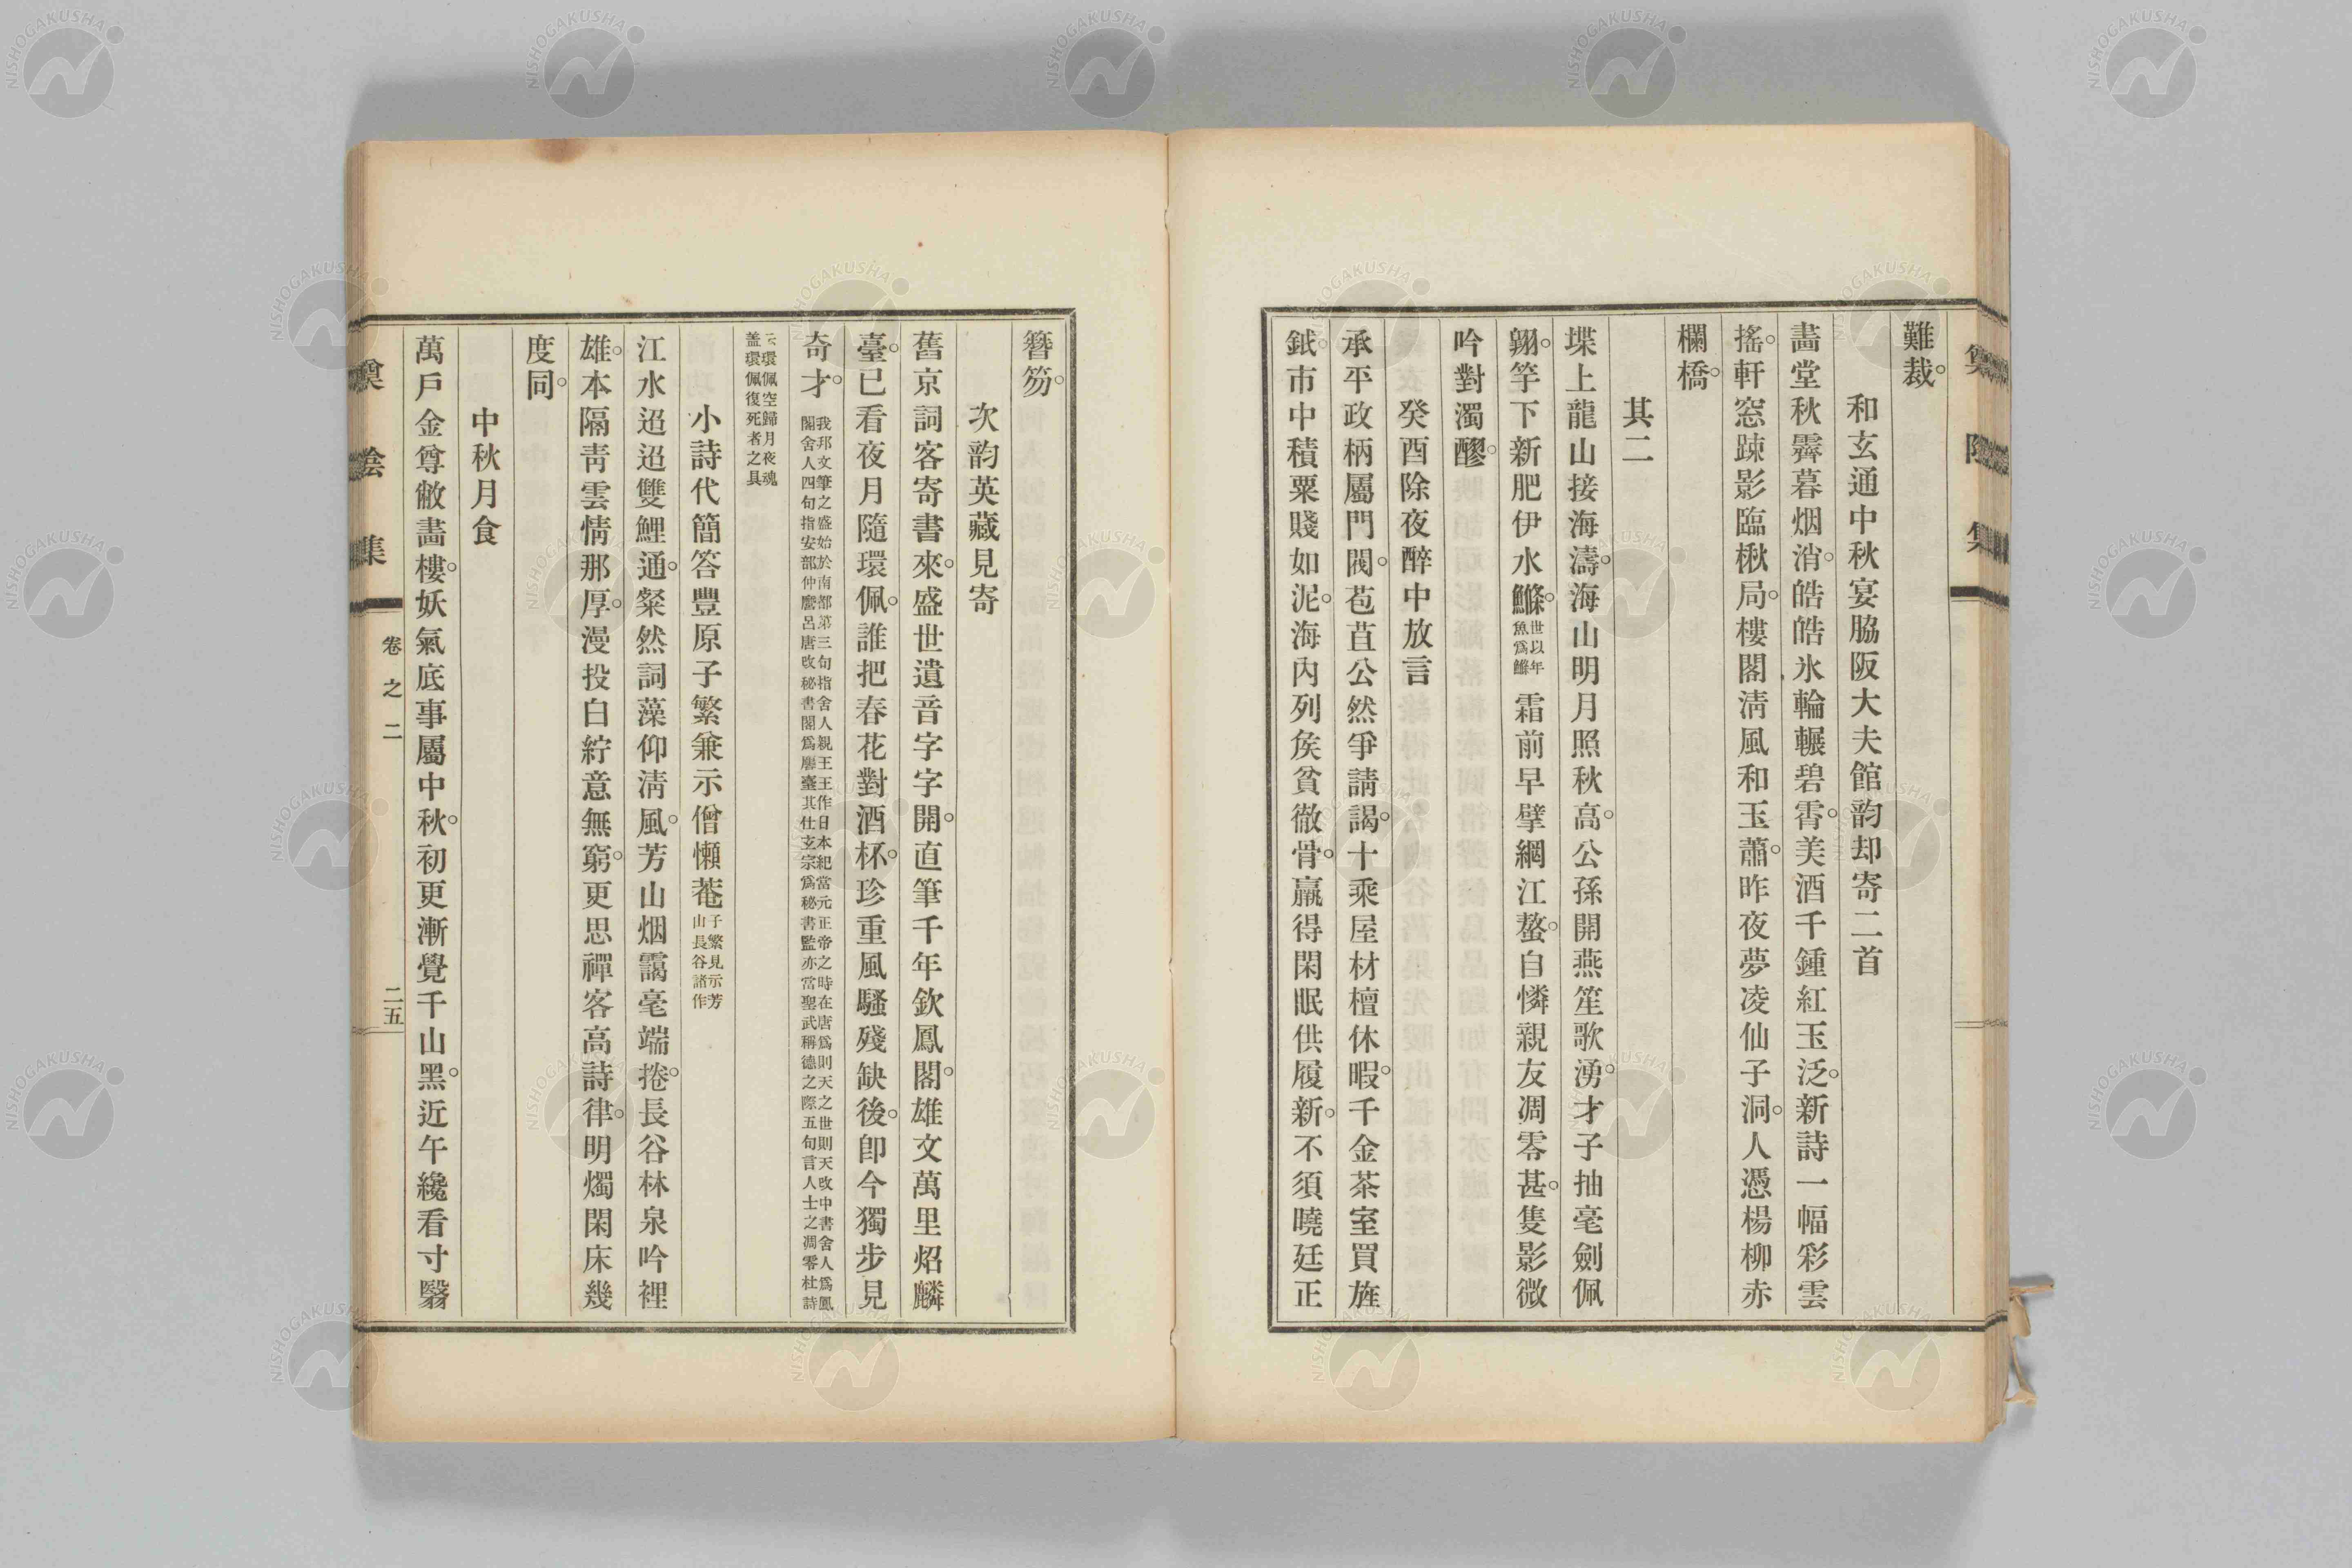 難裁。
和玄通中秋宴脇阪大夫館韵却寄二首
畵堂秋霽暮烟消。皓皓氷輪輾碧霄。美酒千鍾紅玉泛。新詩一幅彩雲
搖。軒窓踈影臨楸局。樓閣淸風和玉蕭。昨夜夢凌仙子洞。人憑楊柳赤
欄橋。
其二
堞上龍山接海濤。海山明月照秋高。公孫開燕笙歌湧。才子抽毫劍佩
翺。竿下新肥伊水鰷。世以年魚爲鰷霜前早擘網江螯。自憐親友凋零甚。隻影微
吟對濁醪。
癸酉除夜醉中放言
承平政柄屬門閥。苞苴公然爭請謁。十乘屋材檀休暇。千金茶室買旌
鉞。市中積粟賤如泥。海內列矦貧徹骨。贏得閑眠供履新。不須曉廷正
簪笏。
次韵英藏見寄
舊京詞客寄書來。盛世遺音字字開。直筆千年欽鳳閣。雄文萬里炤麟
臺。已看夜月隨環佩。誰把春花對酒杯。珍重風騷殘缺後。卽今獨步見
奇才。我邦文筆之盛始於南都第三句指舍人親王王作日本紀當元正帝之時在唐爲則天之世則天改中書舍人爲鳳
閣舍人四句指安部仲麿呂唐改秘書閣爲麟臺其仕玄宗爲秘書監亦當聖武稱德之際五句言人士之凋零杜詩
云環佩空歸月夜魂
盖環佩復死者之具
小詩代簡答豐原子繁兼示僧懶菴子繁見示芳山長谷諸作
江水迢迢雙鯉通。粲然詞藻仰淸風。芳山烟靄毫端捲。長谷林泉吟裡
雄。本隔靑雲情那厚。漫投白紵意無窮。更思禪客高詩律。明燭閑床幾
度同。
中秋月食
萬戶金尊敞畵樓。妖氣底事屬中秋。初更漸覺千山黑。近午纔看寸翳
卷之二
二五